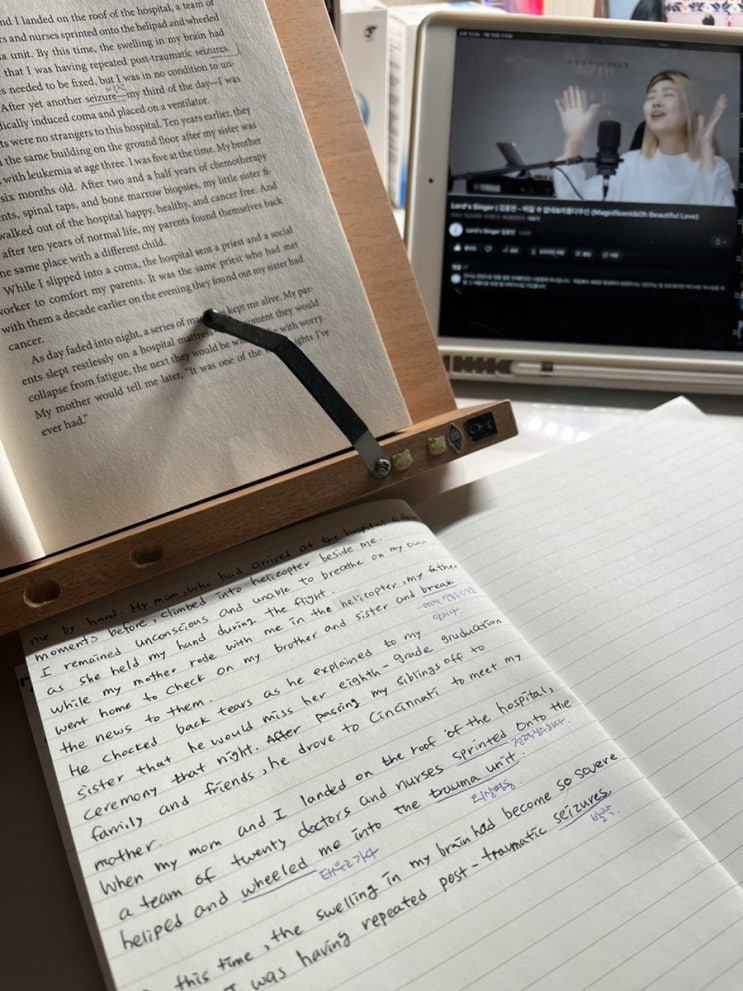 nd I landed on the roof of the hospital, a team of
rs and nurses sprinted onto the helipad and wheeled
a unit. By this time, the swelling in my brain had
that I was having repeated post-traumatic seizures.
es needed to be fixed, but I was in no condition to un-
After yet another seizure—my third of the day—I was
dically induced coma and placed on a ventilator.
ts were no strangers to this hospital. Ten years earlier, they
the same building on the ground floor after my sister was
with leukemia at age three. I was five at the time. My brother
six months old. After two and a half years of chemotherapy
ents, spinal taps, and bone marrow biopsies, my little sister fi-
walked out of the hospital happy, healthy, and cancer free. And
after ten years of normal life, my parents found themselves back
he same place with a different child.
While I slipped into a coma, the hospital sent a priest and a social
worker to comfort my parents. It was the same priest who had met
with them a decade earlier on the evening they found out my sister had
cancer.
As day faded into night, a series of kept me alive. My par-
ents slept restlessly on a hospital they would
collapse from fatigue, the next they would be with worry.
My mother would tell me later, "It was one of the I've
ever had."
Lord's Singer
(Magnificent&Oh Beautiful Love)
Lord's Singer
me by hand. My mom, who had arrived at the hospital a few
moments before, climbed into helicopter beside me.
I remained unconscious and unable to breathe on my own
as she held my hand during the flight.
while my mother rode with me in the helicopter, my father
went home to check on my brother and sister and break
the news to them.
He chocked back tears as he explained to my
sister that he would miss her eighth-grade graduation
ceremony that night. After passing my siblings off to
family and friends, he drove to Cincinnati to meet my
mother.
When my mom and I landed on the roof of the hospital,
a team of twenty doctors and nurses sprinted onto the
전력질주하다
heliped and wheeled me into the trauma unit.
태우고가다
외상병동
this time, the swelling in my brain had become so severe
I was having repeated post-traumatic seizures.
발작